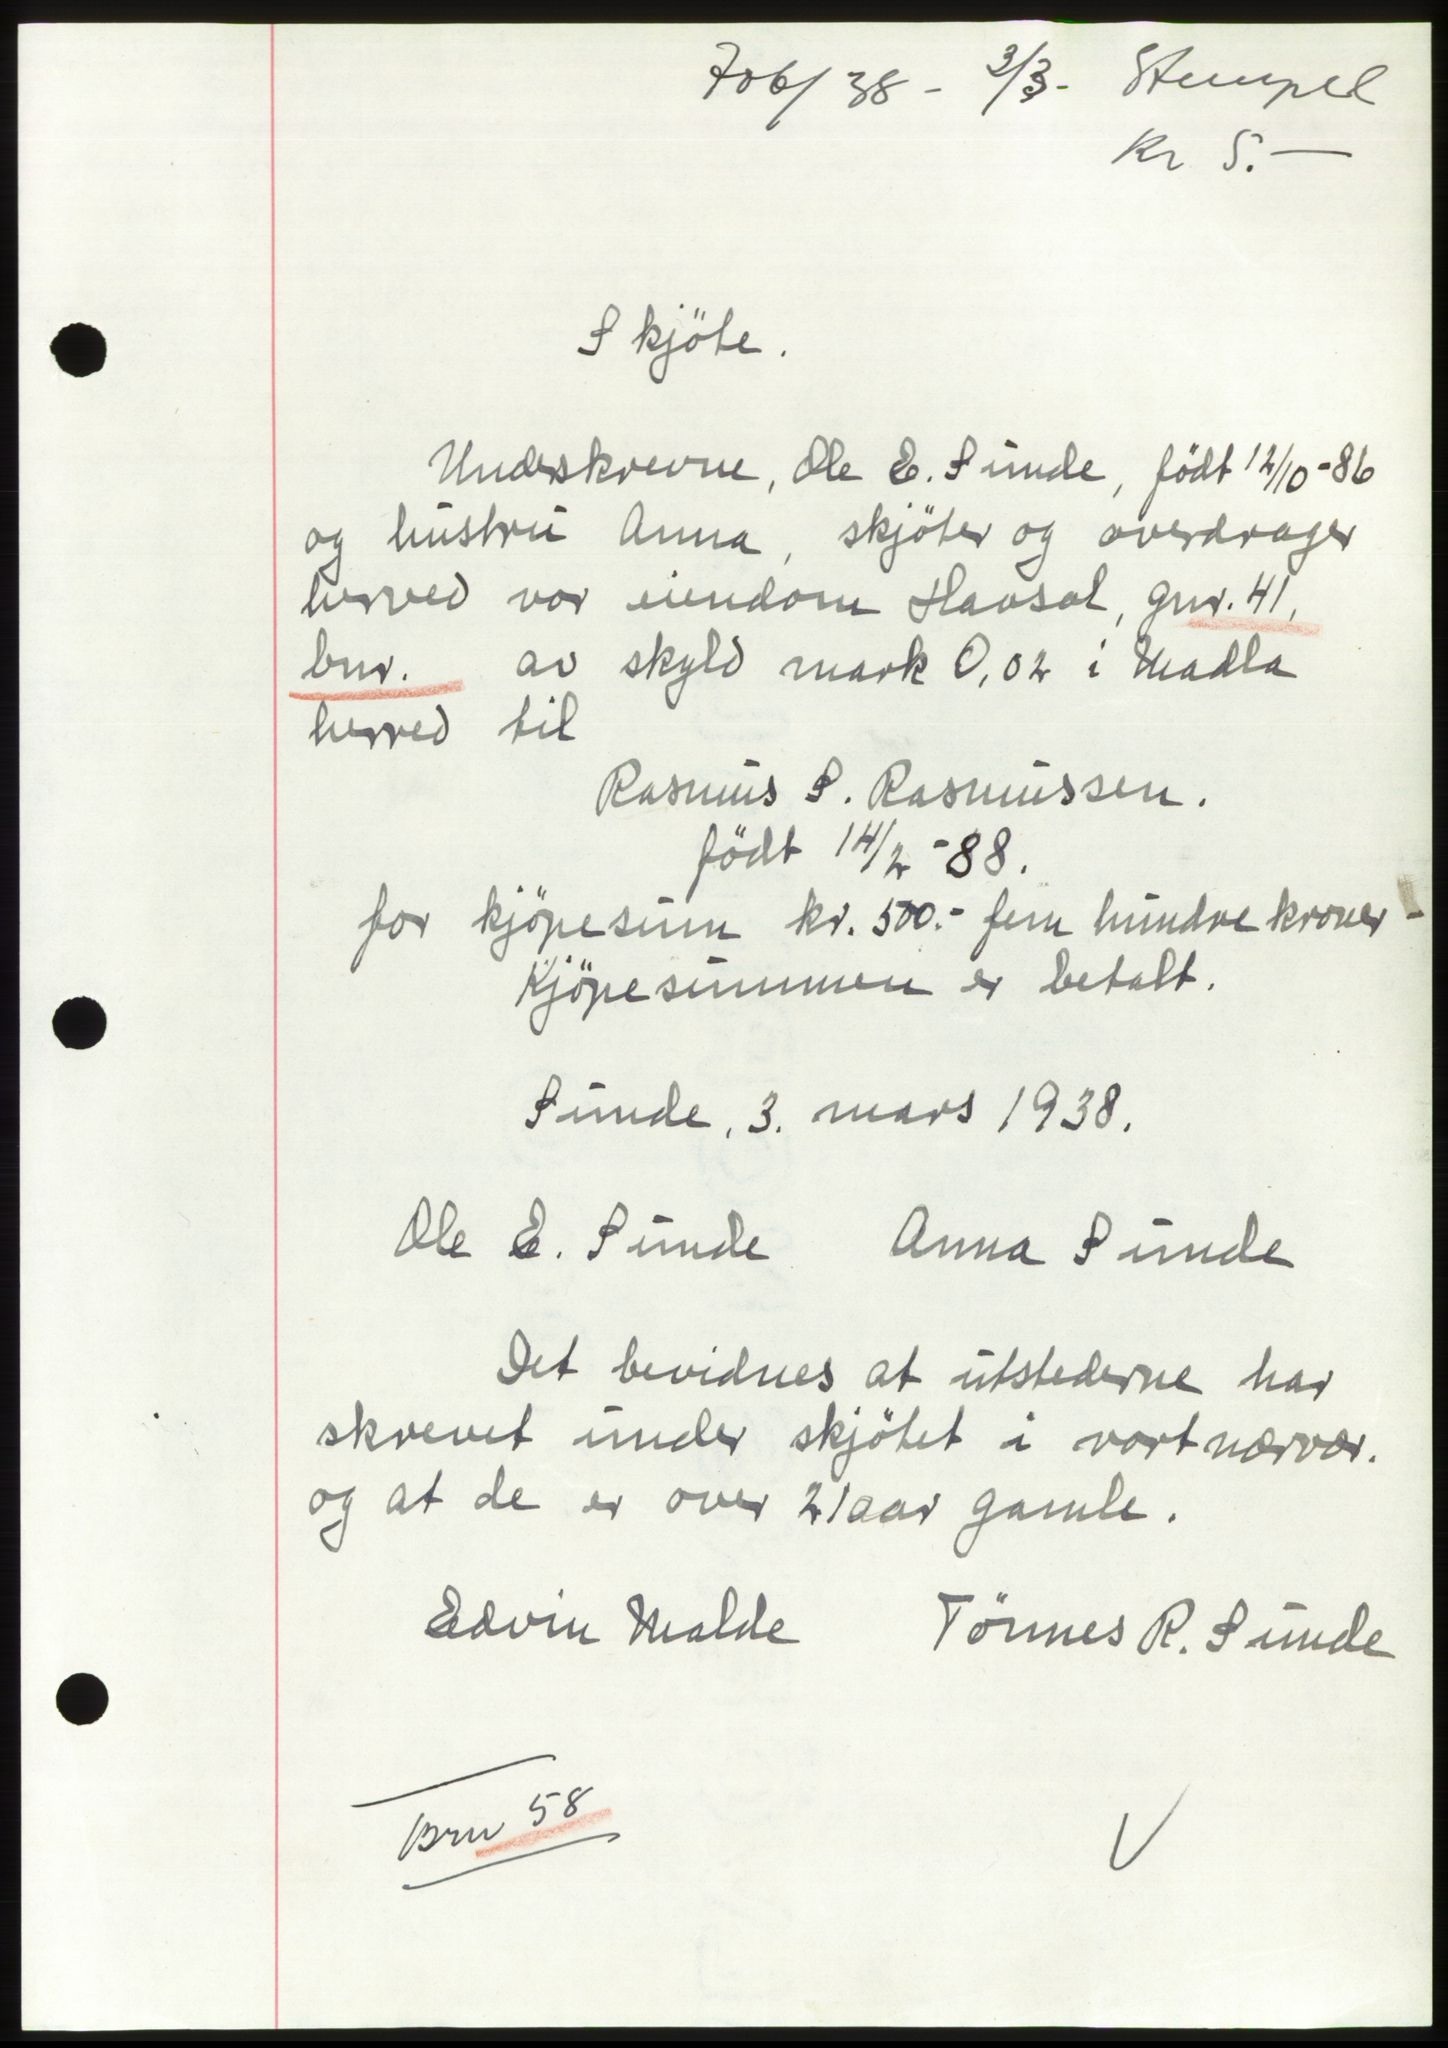 706/38 - 3/3 - Stempel
Kr 5.—
Skjöte.
Underskrevne, Ole E. Sunde, födt 12/10-86
og hustru Anna, skjöter og overdrager
herved vor eiendom Havsol, gnr. 41,
bnr. av skyld mark 0,02 i Madla
herred til
Rasmus S. Rasmussen.
födt 14/2-88.
for kjöpesum kr. 500.- fem hundre kroner -
Kjöpesummen er betalt.
Sunde, 3. mars 1938.
Ole E. Sunde Anna Sunde
Det bevidnes at utstederne har
skrevet under skjötet i vort nærvær.
og at de er over 21 aar gamle.
Edvin Malde Törnes R. Sunde
Brn 58